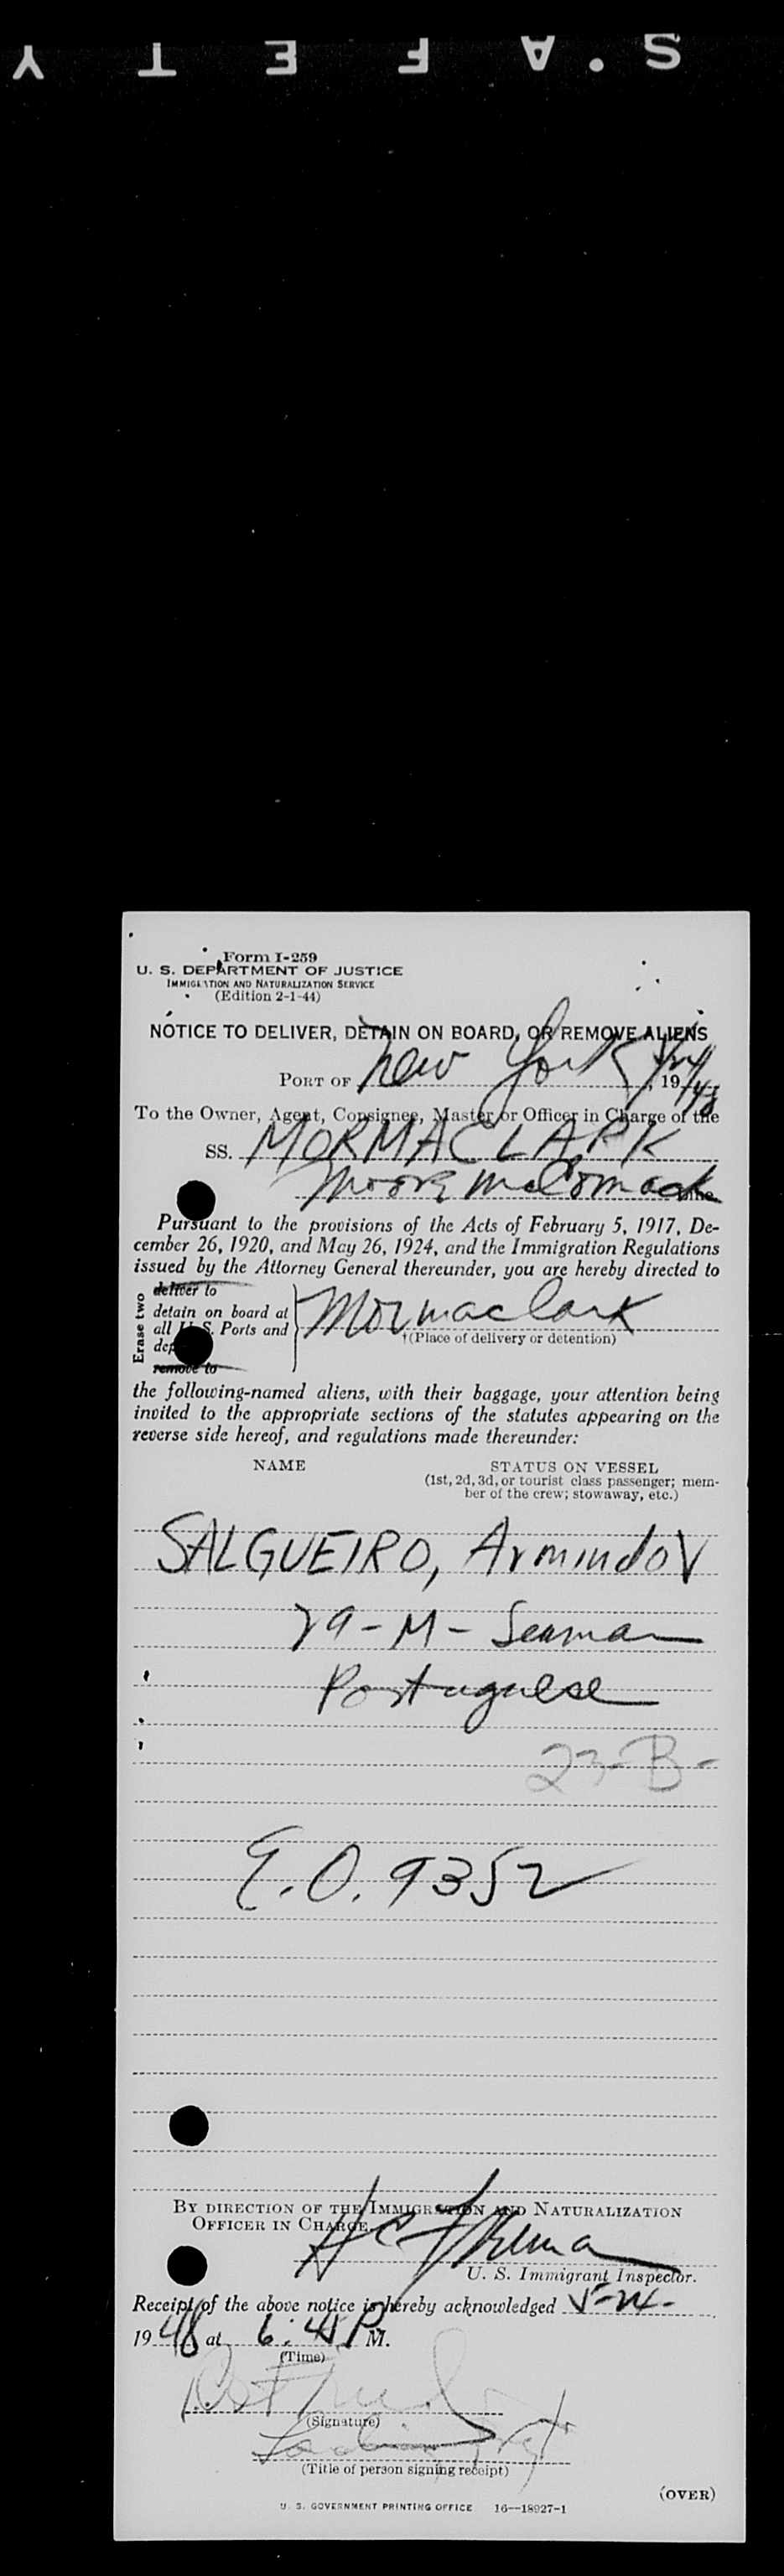 S.A F E T Y
Form I-259
U. S. DEPARTMENT OF JUSTICE
IMMIGRATION AND NATURALIZATION SERVICE
(Edition 2-1-44)
NOTICE TO DELIVER, DETAIN ON BOARD, OR REMOVE ALIENS
PORT OF New York, 19
To the Owner, Agent, Consignee, Master or Officer in Charge of the
SS. MORMACLARK
Moore McCormack Line
Pursuant to the provisions of the Acts of February 5, 1917, De-
cember 26, 1920, and May 26, 1924, and the Immigration Regulations
issued by the Attorney General thereunder, you are hereby directed to
Erase two
deliver to
detain on board at
all U. S. Ports and
remove to
Mormaclark
†(Place of delivery or detention)
the following-named aliens, with their baggage, your attention being
invited to the appropriate sections of the statutes appearing on the
reverse side hereof, and regulations made thereunder:
NAME STATUS ON VESSEL
(1st, 2d, 3d, or tourist class passenger; mem-
ber of the crew; stowaway, etc.)
SALGUEIRO, Armindo V
29 - M - Seaman
Portuguese
23-B-
E.O. 9352
BY DIRECTION OF THE IMMIGRATION AND NATURALIZATION
OFFICER IN CHARGE
U. S. Immigrant Inspector.
Receipt of the above notice is hereby acknowledged
1948 at P M.
(Time)
(Signature)
(Title of person signing receipt)
(OVER)
U. S. GOVERNMENT PRINTING OFFICE 16—18927-1